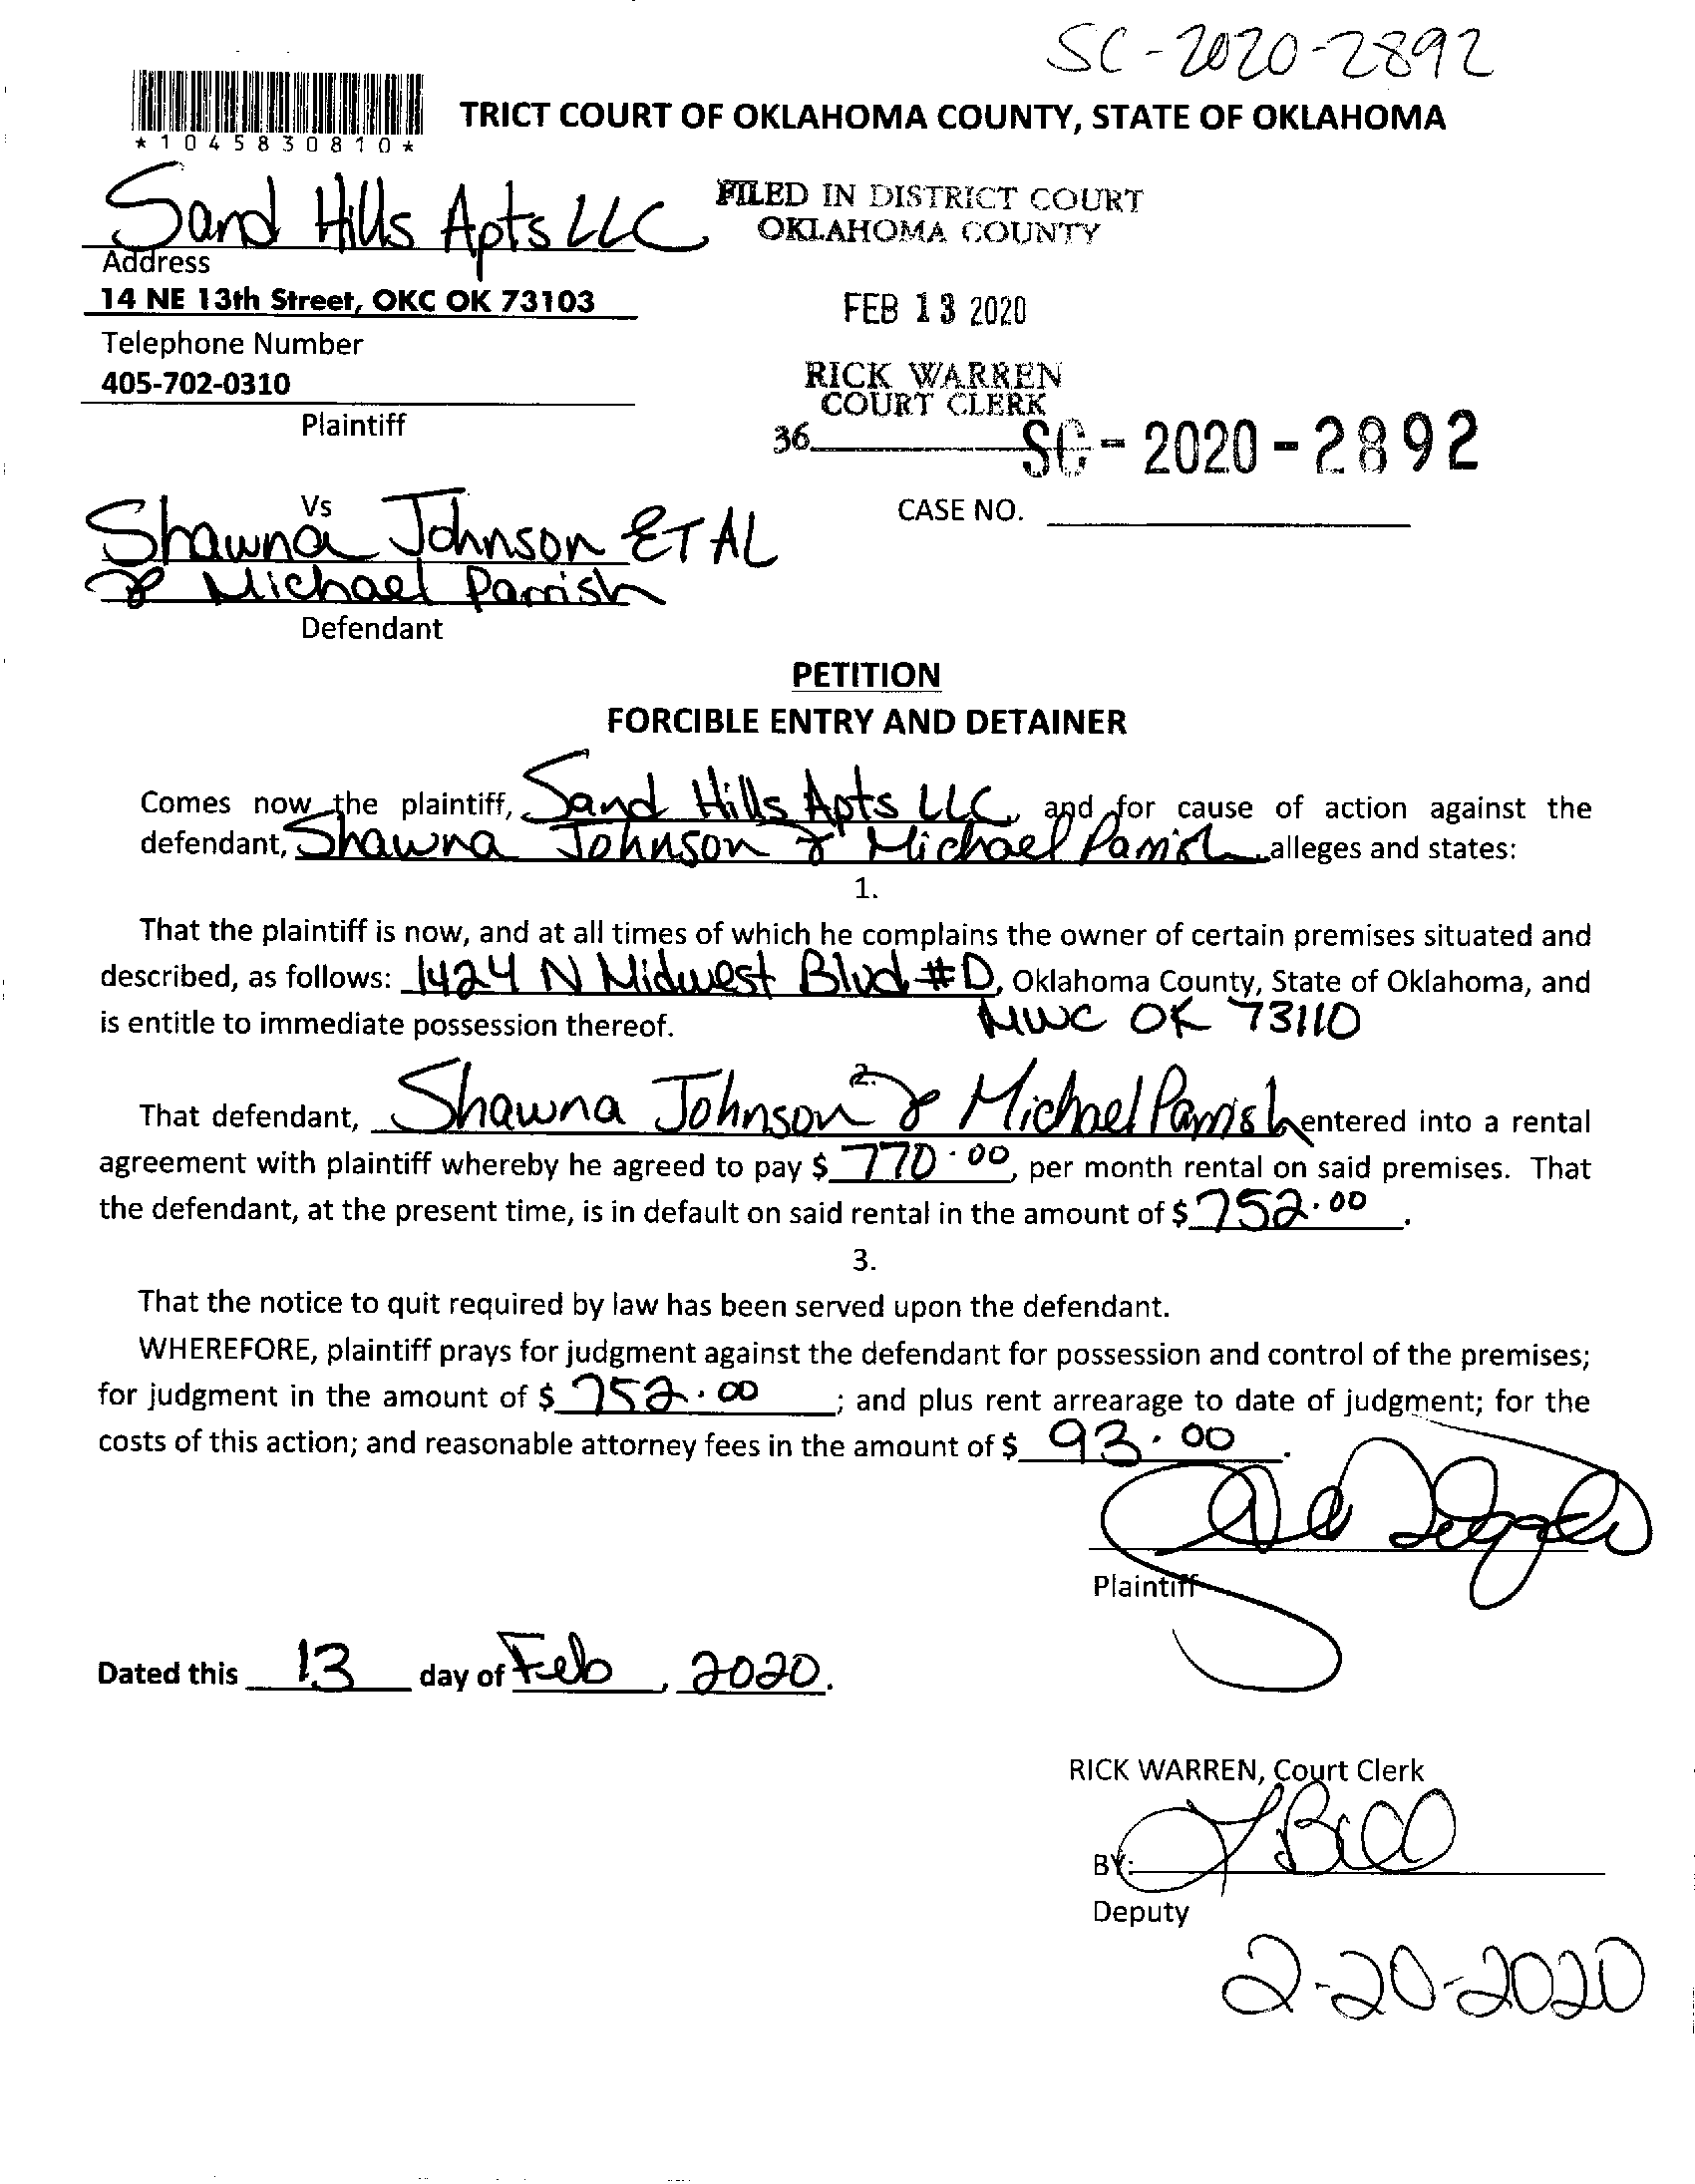 SC-2020-2892
TRICT COURT OF OKLAHOMA COUNTY, STATE OF OKLAHOMA
*1045830810*
Sand Hills Apts LLC
FILED IN DISTRICT COURT
OKLAHOMA COUNTY
Address
14 NE 13th Street, OKC OK 73103
FEB 13 2020
Telephone Number
405-702-0310
RICK WARREN
COURT CLERK
Plaintiff
36
SC-2020-2892
Vs
CASE NO.
Shawna Johnson ET AL
& Michael Parrish
Defendant
PETITION
FORCIBLE ENTRY AND DETAINER
Comes now the plaintiff, Sand Hills Apts LLC, and for cause of action against the
defendant, Shawna Johnson & Michael Parrish alleges and states:
1.
That the plaintiff is now, and at all times of which he complains the owner of certain premises situated and
described, as follows: 1424 N Midwest Blvd #D, Oklahoma County, State of Oklahoma, and
is entitle to immediate possession thereof. MWC OK 73110
2.
That defendant, Shawna Johnson & Michael Parrish entered into a rental
agreement with plaintiff whereby he agreed to pay $ 770.00, per month rental on said premises. That
the defendant, at the present time, is in default on said rental in the amount of $ 752.00.
3.
That the notice to quit required by law has been served upon the defendant.
WHEREFORE, plaintiff prays for judgment against the defendant for possession and control of the premises;
for judgment in the amount of $ 752.00; and plus rent arrearage to date of judgment; for the
costs of this action; and reasonable attorney fees in the amount of $ 93.00.
Plaintiff
Dated this 13 day of Feb, 2020.
RICK WARREN, Court Clerk
BY:
Deputy
2-20-2020